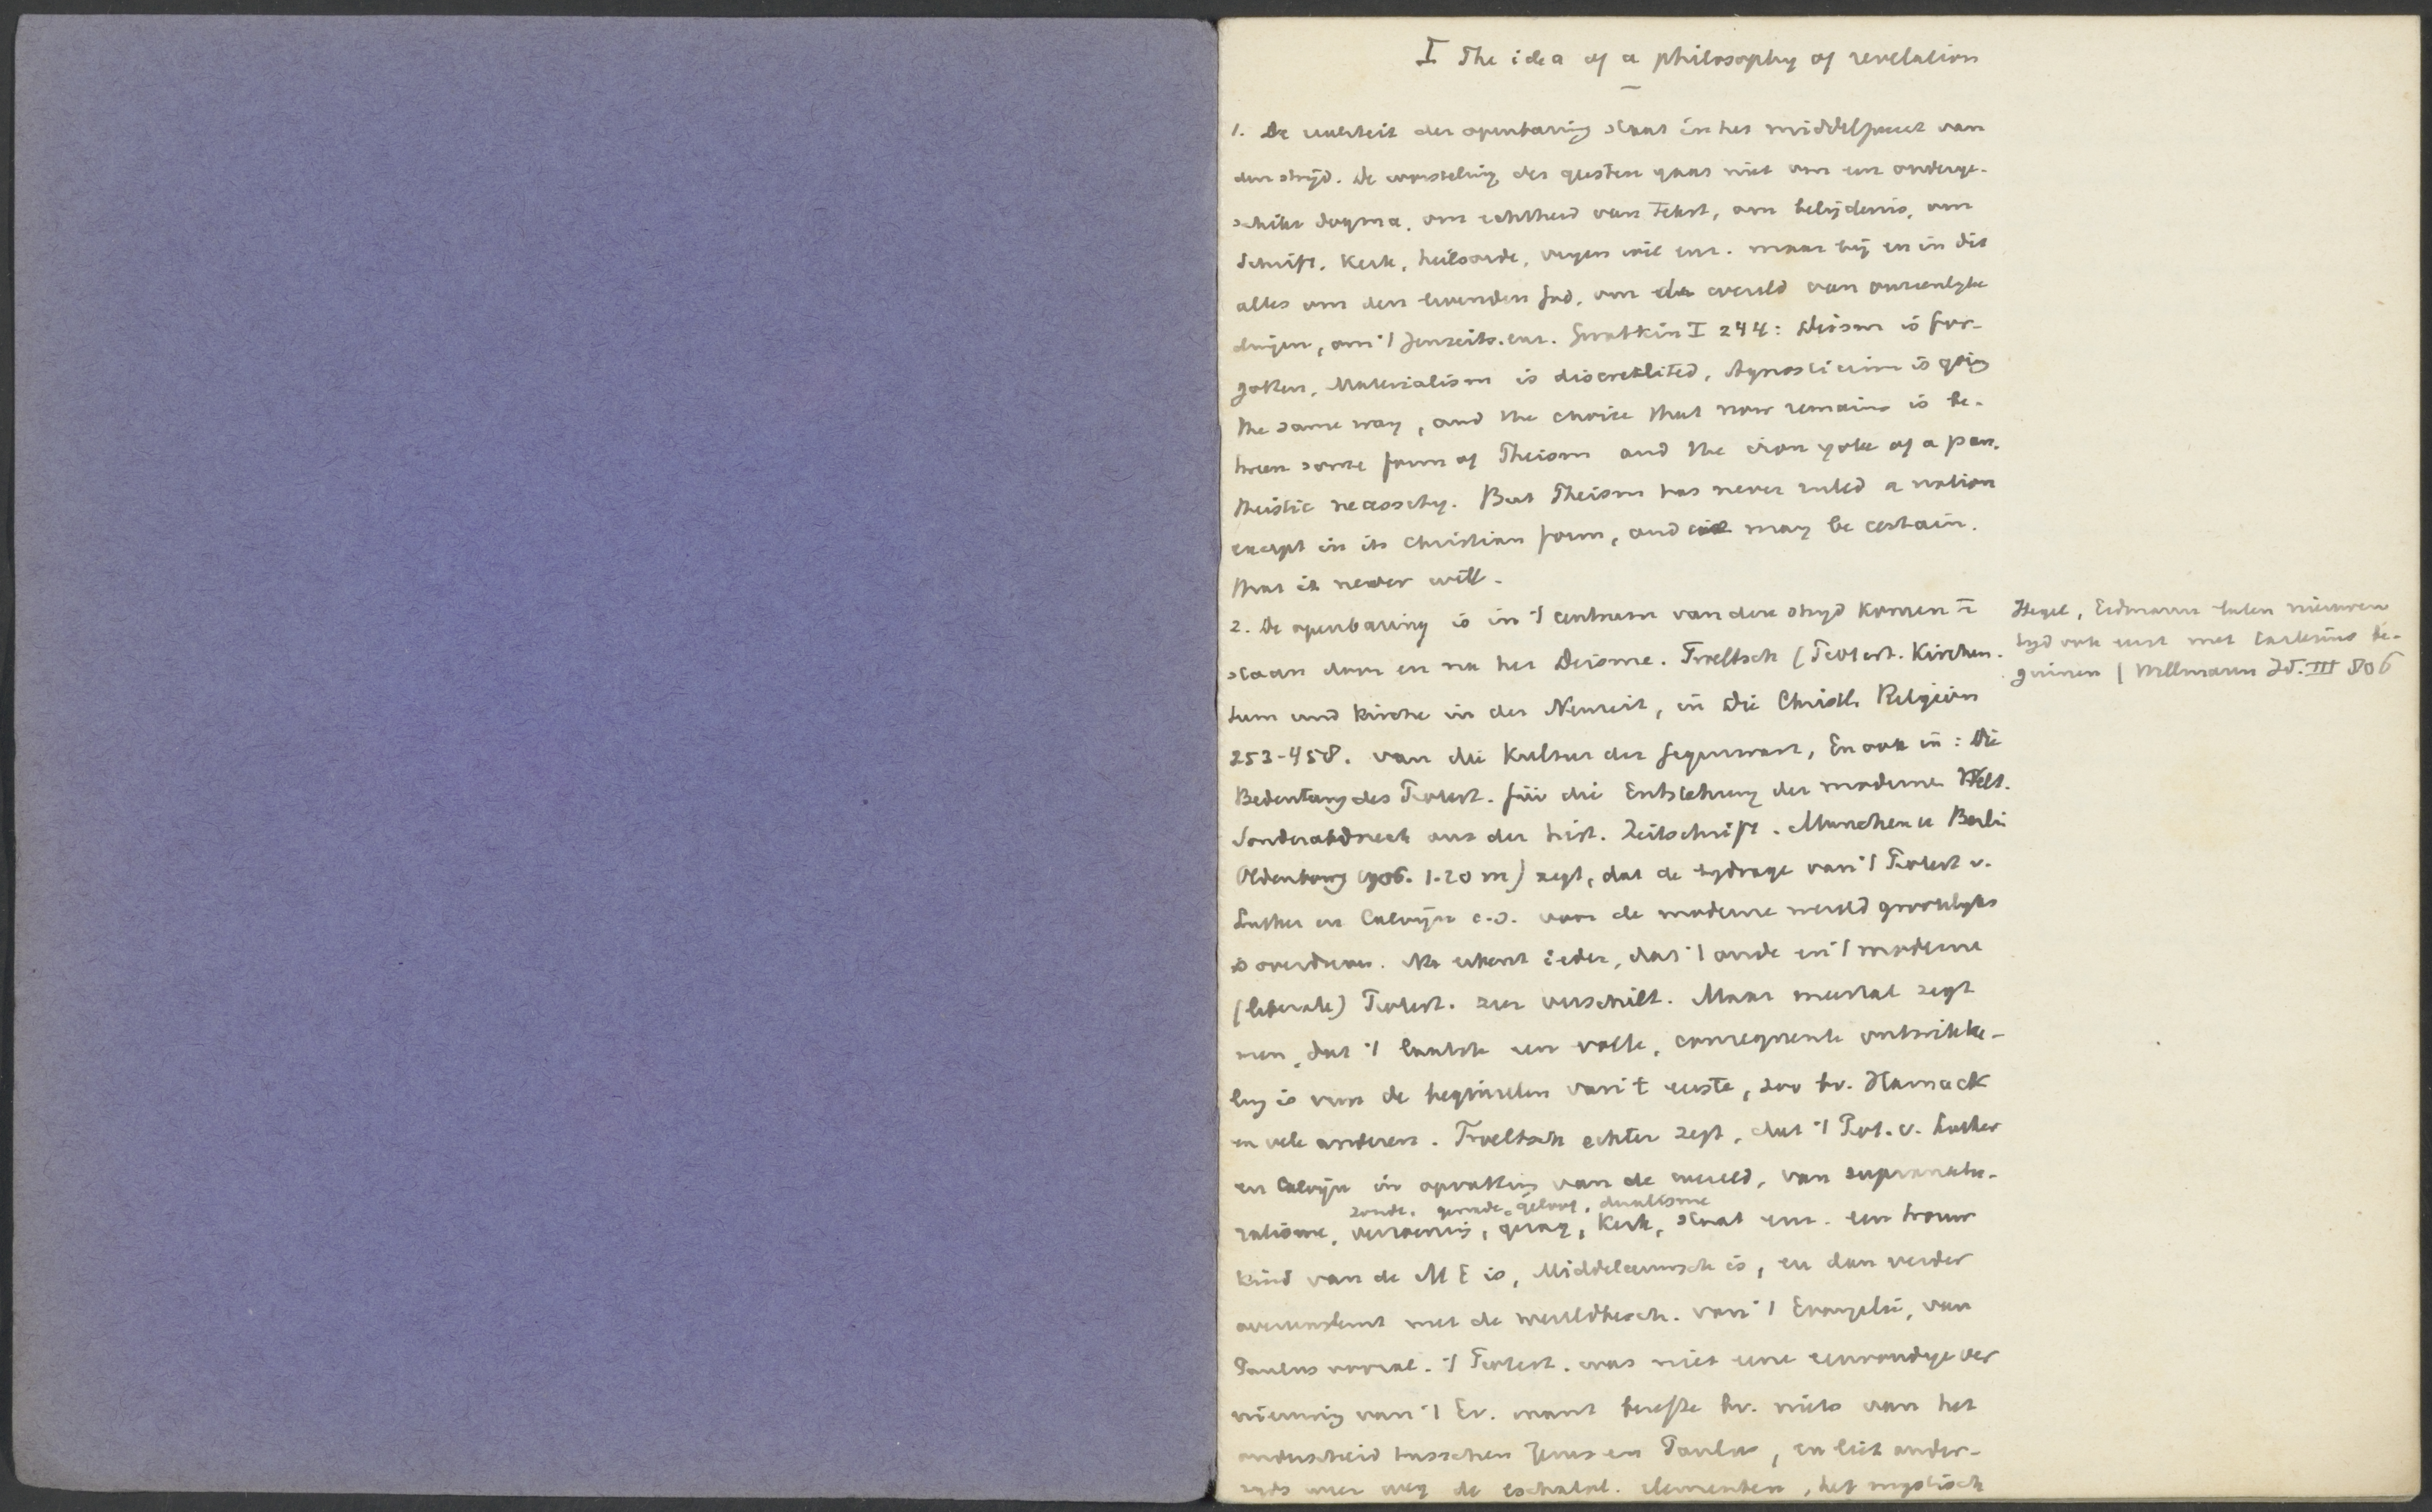 I The idea of a philosophy of revelation
1. De realiteit der openbaring staat in het middelpunt van
den strijd. De worsteling der geesten gaat niet om een onderge-
schikt dogma, om echtheid van tekst, om belijdenis, om
Schrift, Kerk, heilsorde, vrijen wil enz. maar bij en in dit
alles om den levenden God, om de wereld van onzienlijke
dingen, om 't Jenseits. enz. Gwatkin I 244: Deism is for-
gotten, Materialism is discredited, Agnosticism is going
the same way, and the choice that now remains is be-
tween some form of Theism and the iron yoke of a pan-
theistic necessity. But Theism has never ruled a nation
except in its christian form, and it may be certain.
that it never will.
2. De openbaring is in 't centrum van den strijd komen te
staan door en na het Deisme. Troeltsch (Protest. Kirchen-
tum und Kirche in der Neuzeit, in Die Christl. Religion
253-458. van die Kultur der Gegenwart, En ook in: Die
Bedeutung des Protest. für die Entstehung der modernen Welt.
Sonderabdruck aus der hist. Zeitschrift. Munchen u Berlin
Oldenbourg 1906. 1.20 m) zegt, dat de bijdrage van 't Protest v.
Luther en Calvijn c.s. voor de moderne wereld grootelijks
is overdreven. Nu erkent ieder, dat 't oude en 't moderne
(liberale) Protest. zeer verschilt. Maar meestal zegt
men, dat 't laatste een volle, consequente ontwikke-
ling is van de beginselen van 't eerste, zoo bv. Harnack
en vele anderen. Troeltsch echter zegt, dat 't Prot. v. Luther
en Calvijn in opvatting van de wereld, van supranatu-
zonde, genade, geloof, dualisme
ralisme, verzoening, gezag, Kerk, Staat enz. een trouw
kind van de M E is, Middeleeuwsch is, en dan verder
overeenstemt met de wereldbesch. van 't Evangelie, van
Paulus vooral. 't Protest. was niet eene eenvoudige ver
nieuwing van 't Ev. want besefte bv. niets van het
onderscheid tusschen Jezus en Paulus, en liet ander-
zijds weer weg de eschatol. elementen, het mystisch
Hegel, Erdmann laten nieuwen
tijd ook eerst met Cartesius be-
ginnen | Willmann Id. III 806